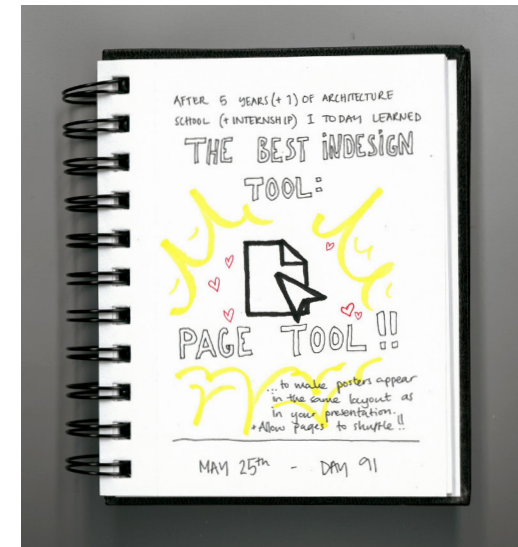 AFTER 5 YEARS (+1) OF ARCHITECTURE
SCHOOL (+ INTERNSHIP) I TODAY LEARNED
THE BEST INDESIGN
TOOL:
PAGE TOOL !!
...to make posters appear
in the same layout as
in your presentation.
+ Allow pages to shuffle!!
MAY 25th - DAY 91